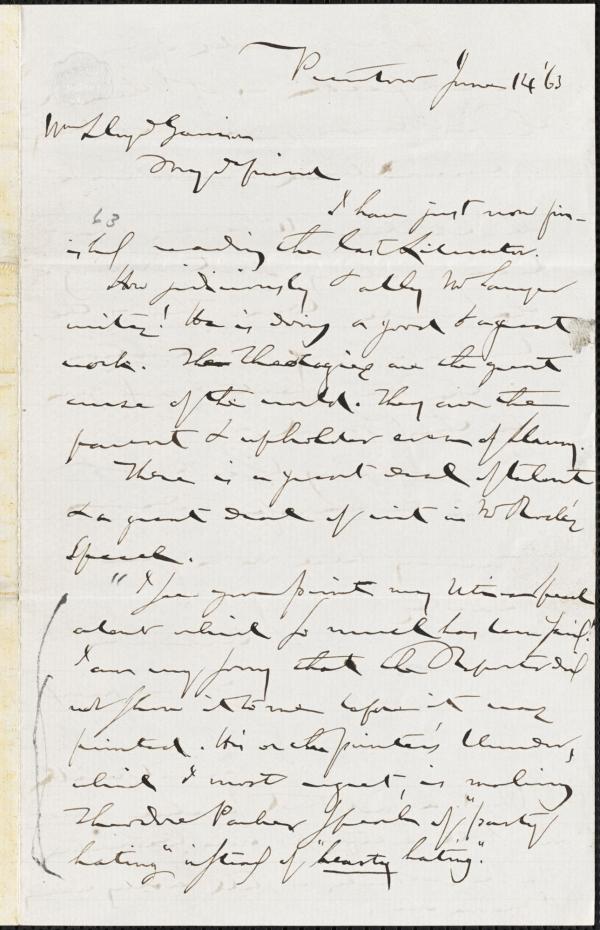 Peterboro June 14 '63
Wm Lloyd Garrison
My d friend
63
I have just now fin-
ished reading the last Liberator.
How judiciously & ably Mr
writes! He is doing a good & a great
work. The Theologies are the great
curse of the world. They are the
parent & upholder even of slavery.
There is a great deal of talent
& a great deal of wit in W
Speech.
"I see you print my Utica Speech
about which so much has been said.
I am very sorry that the Reporter did
not show it to me before it was
printed. His or the printer's blunder,
which I most regret, is making
Theodore Parker speak of "party
hating" instead of "hearty hating".